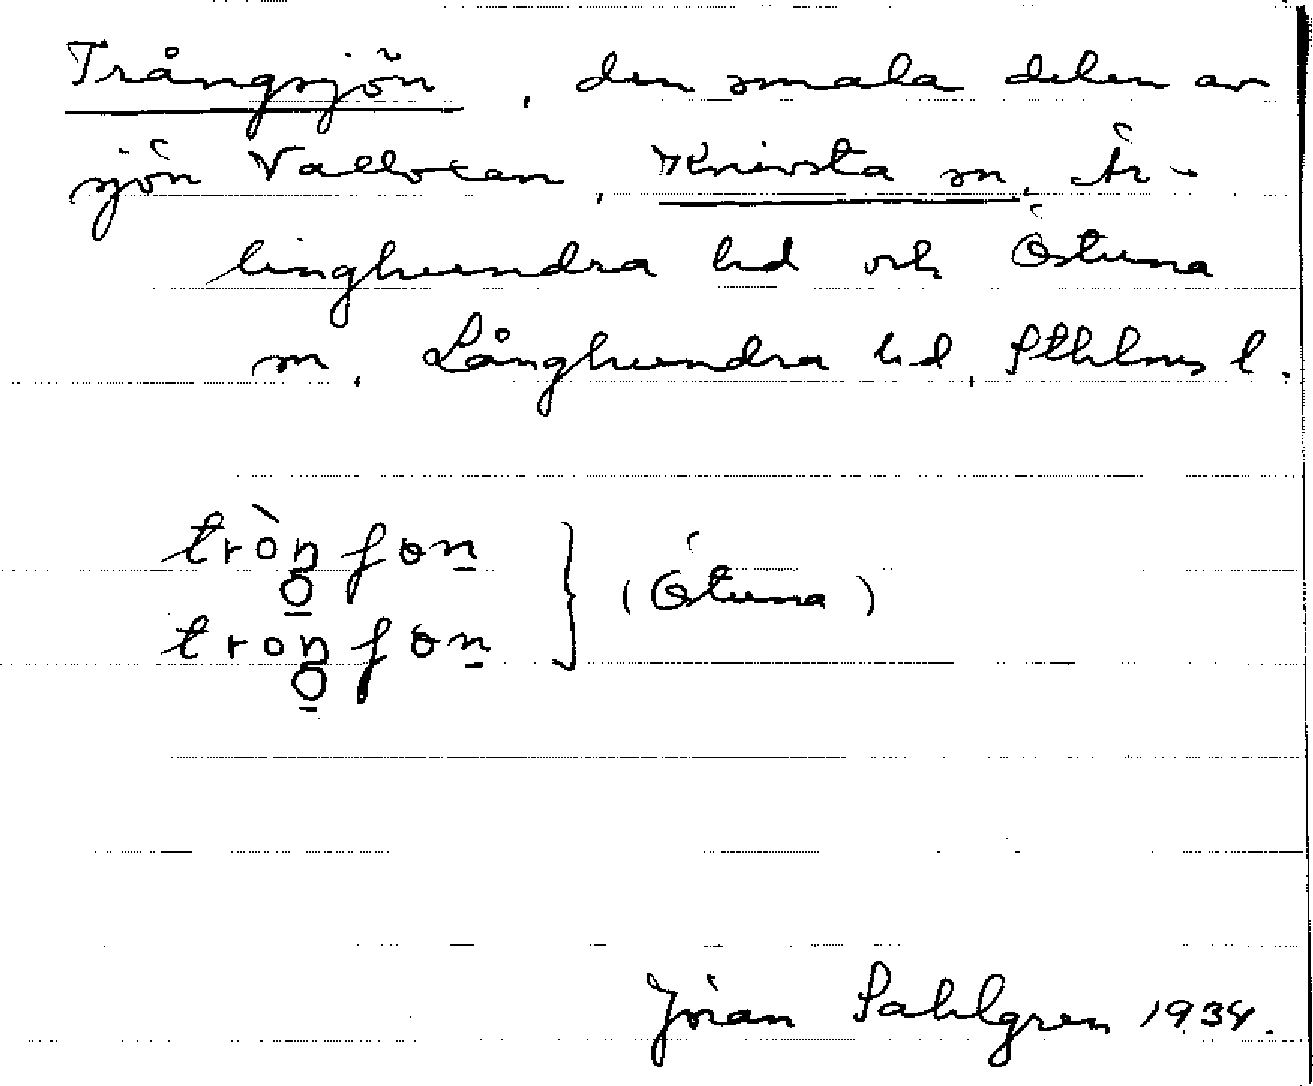 Trångsjön, den smala delen av
sjön Valloxen, Knivsta sn, Är-
linghundra hd och Östuna
sn, Långhundra hd, Sthlms l.
tròŋ̣ʃon
troŋʃon } (Östuna)
Jöran Sahlgren 1934.